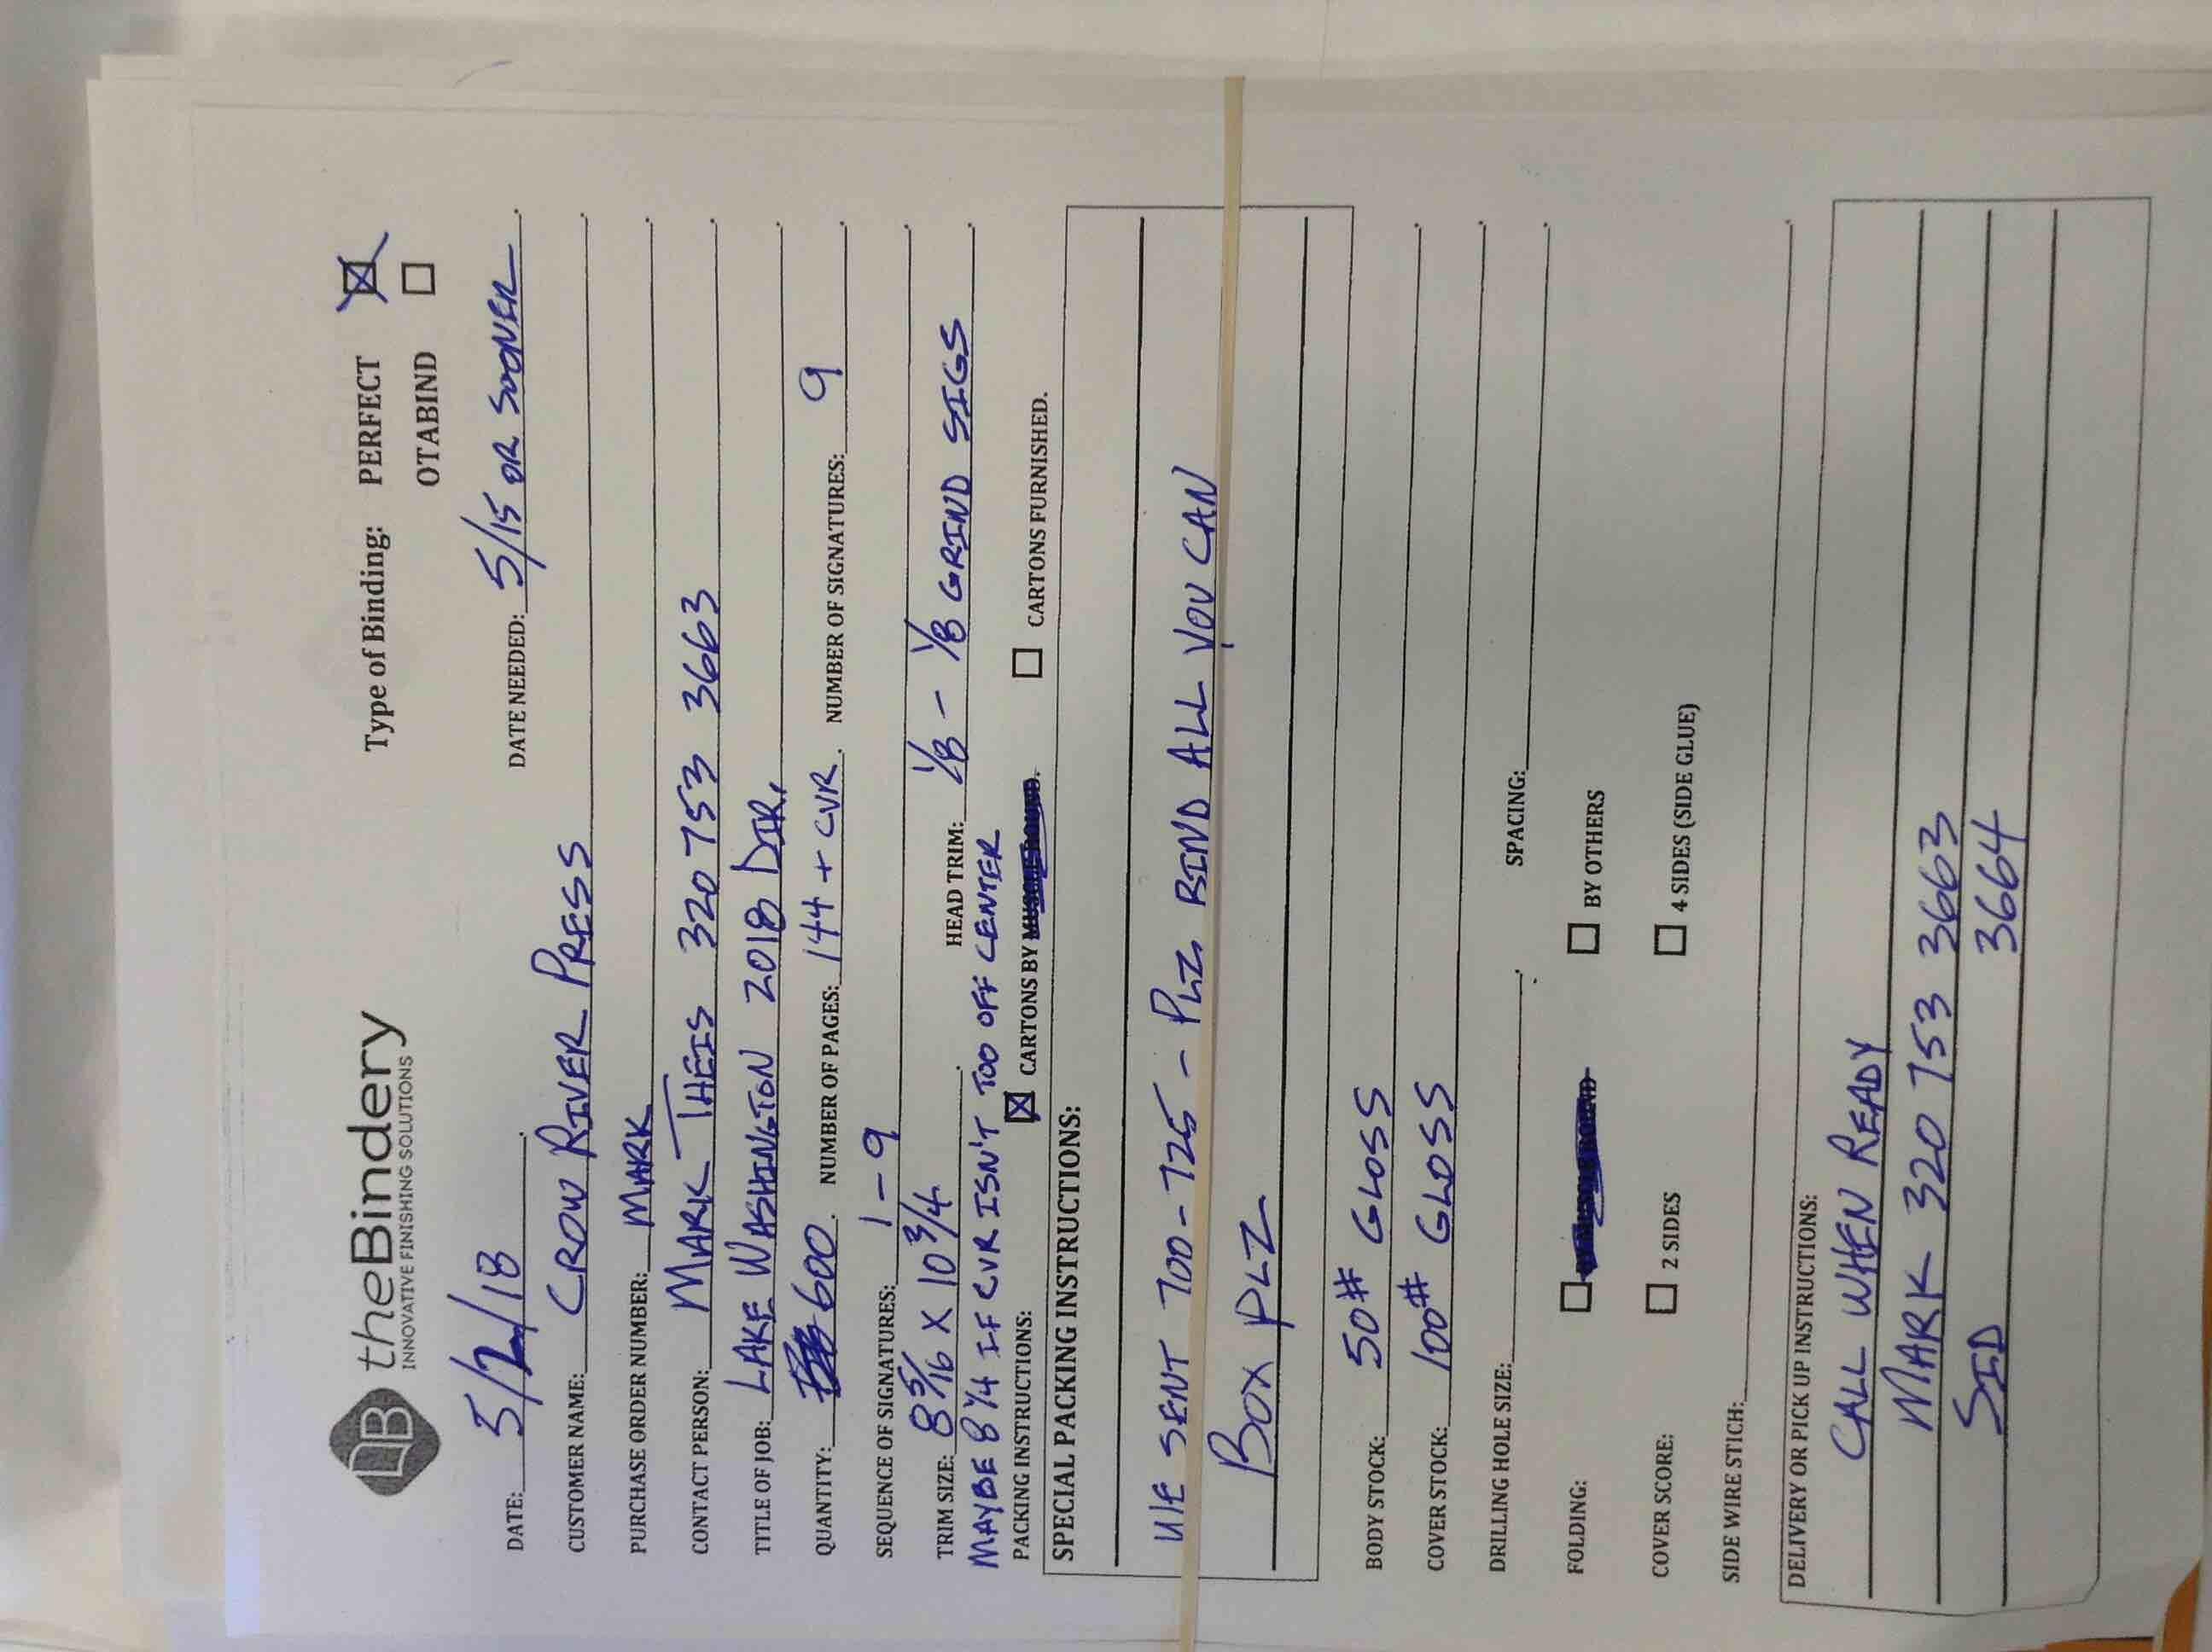 theBindery
INNOVATIVE FINISHING SOLUTIONS
Type of Binding: PERFECT
OTABIND
DATE: 5/2/18 . DATE NEEDED: 5/15 OR SOONER .
CUSTOMER NAME: CROW RIVER PRESS .
PURCHASE ORDER NUMBER: MARK .
CONTACT PERSON: MARK THEIS 320 753 3663 .
TITLE OF JOB: LAKE WASHINGTON 2018 DIR. .
QUANTITY: 600 . NUMBER OF PAGES: 144 + CVR . NUMBER OF SIGNATURES: 9 .
SEQUENCE OF SIGNATURES: 1-9 .
TRIM SIZE: 8 5/16 X 10 3/4 . HEAD TRIM: 1/8 - 1/8 GRIND SIGS .
MAYBE 8 1/4 IF CVR ISN'T TOO OFF CENTER
PACKING INSTRUCTIONS: CARTONS BY CARTONS FURNISHED.
SPECIAL PACKING INSTRUCTIONS:
WE SENT 700-725 - PLZ BIND ALL YOU CAN
BOX PLZ
BODY STOCK: 50# GLOSS .
COVER STOCK: 100# GLOSS .
DRILLING HOLE SIZE: . SPACING: .
FOLDING: BY OTHERS
COVER SCORE: 2 SIDES 4 SIDES (SIDE GLUE)
SIDE WIRE STICH: .
DELIVERY OR PICK UP INSTRUCTIONS:
CALL WHEN READY
MARK 320 753 3663
SID 3664